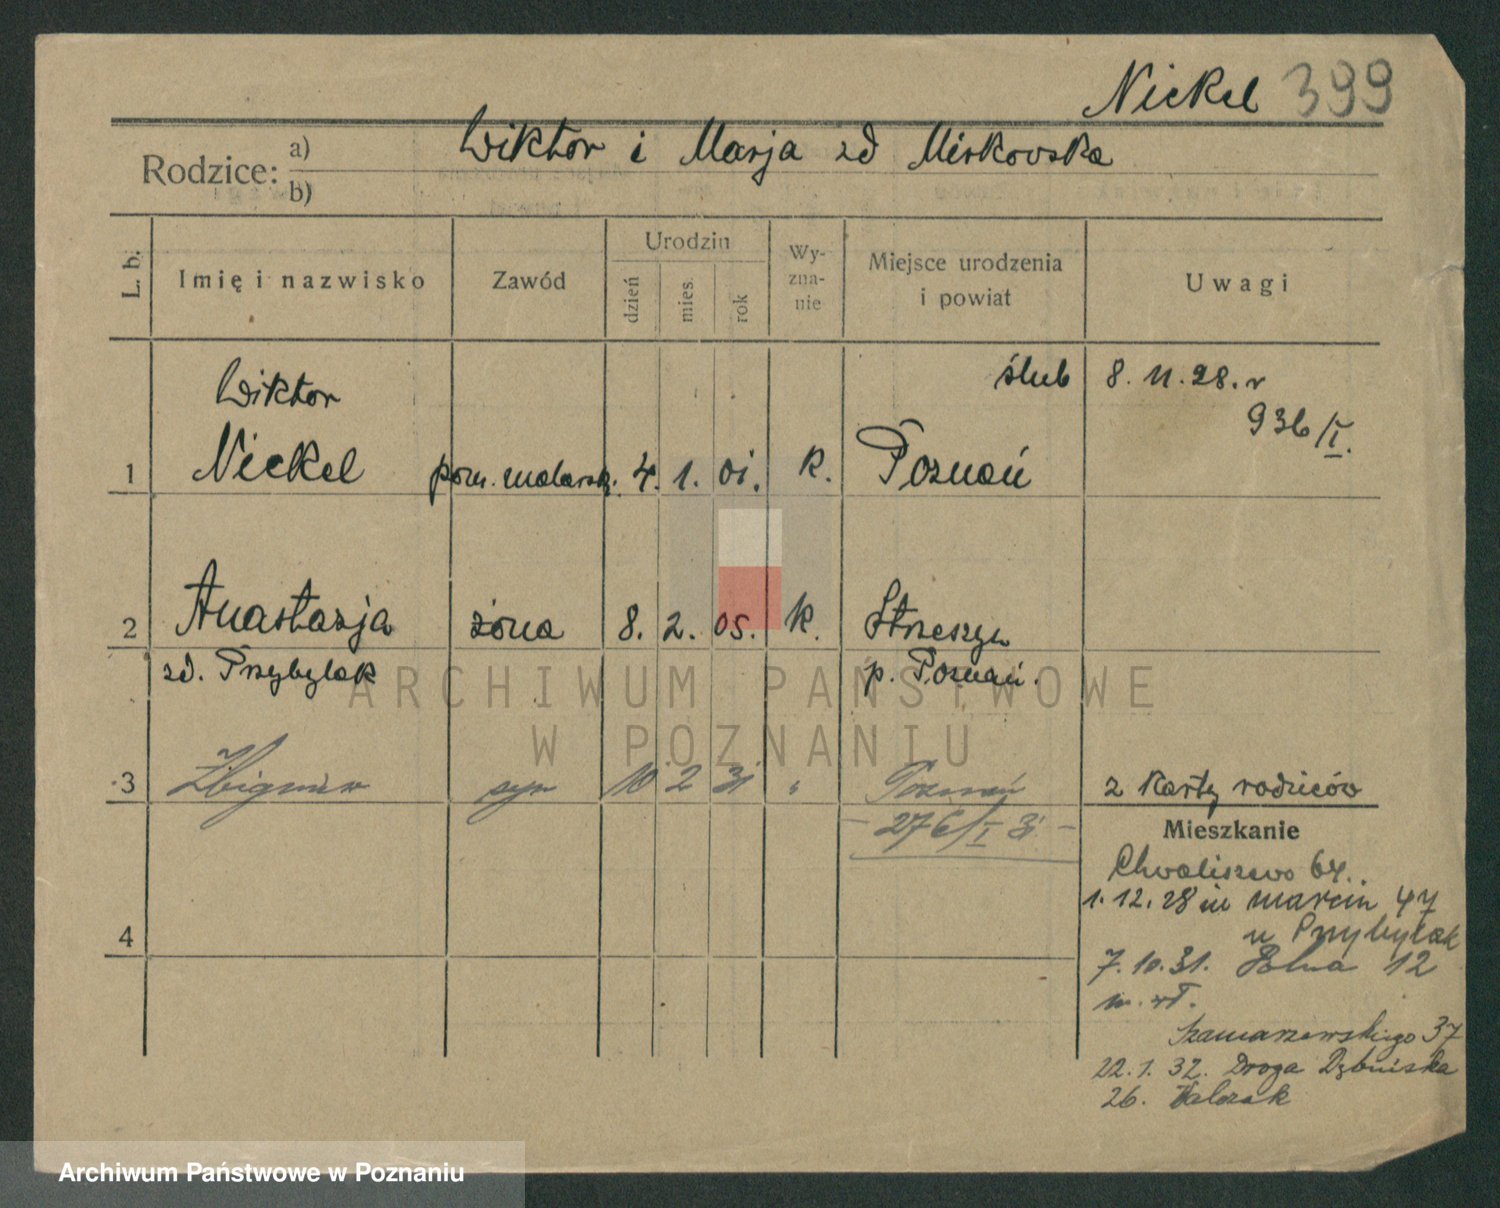 Nickel 399
Rodzice: a) Wiktor i Marja zd Mirkovska
b)
L. b.
Imię i nazwisko
Zawód
Urodzin
dzień
mies.
rok
Wy-
zna-
nie
Miejsce urodzenia
i powiat
Uwagi
ślub 8. 11. 28. r
936/I.
Wiktor
1 Nickel pom. malarsk. 4. 1. 01. k. Poznań
2 Anastazja żona 8. 2. 05. k. Strzeszyn
zd. Przybylak p. Poznań.
3 Zbigniew syn 10 2 31 " Poznań 2 Karty rodziców
- 276/I 31 -
Mieszkanie
Chwaliszewo 64.
1. 12. 28 św marcin 47
u Przybylak
7. 10. 31. 12
4
Szamarzewskiego 37
22. 1. 32. Droga Dębińska
26. Walczak
ARCHIWUM PAŃSTWOWE
W POZNANIU
Archiwum Państwowe w Poznaniu